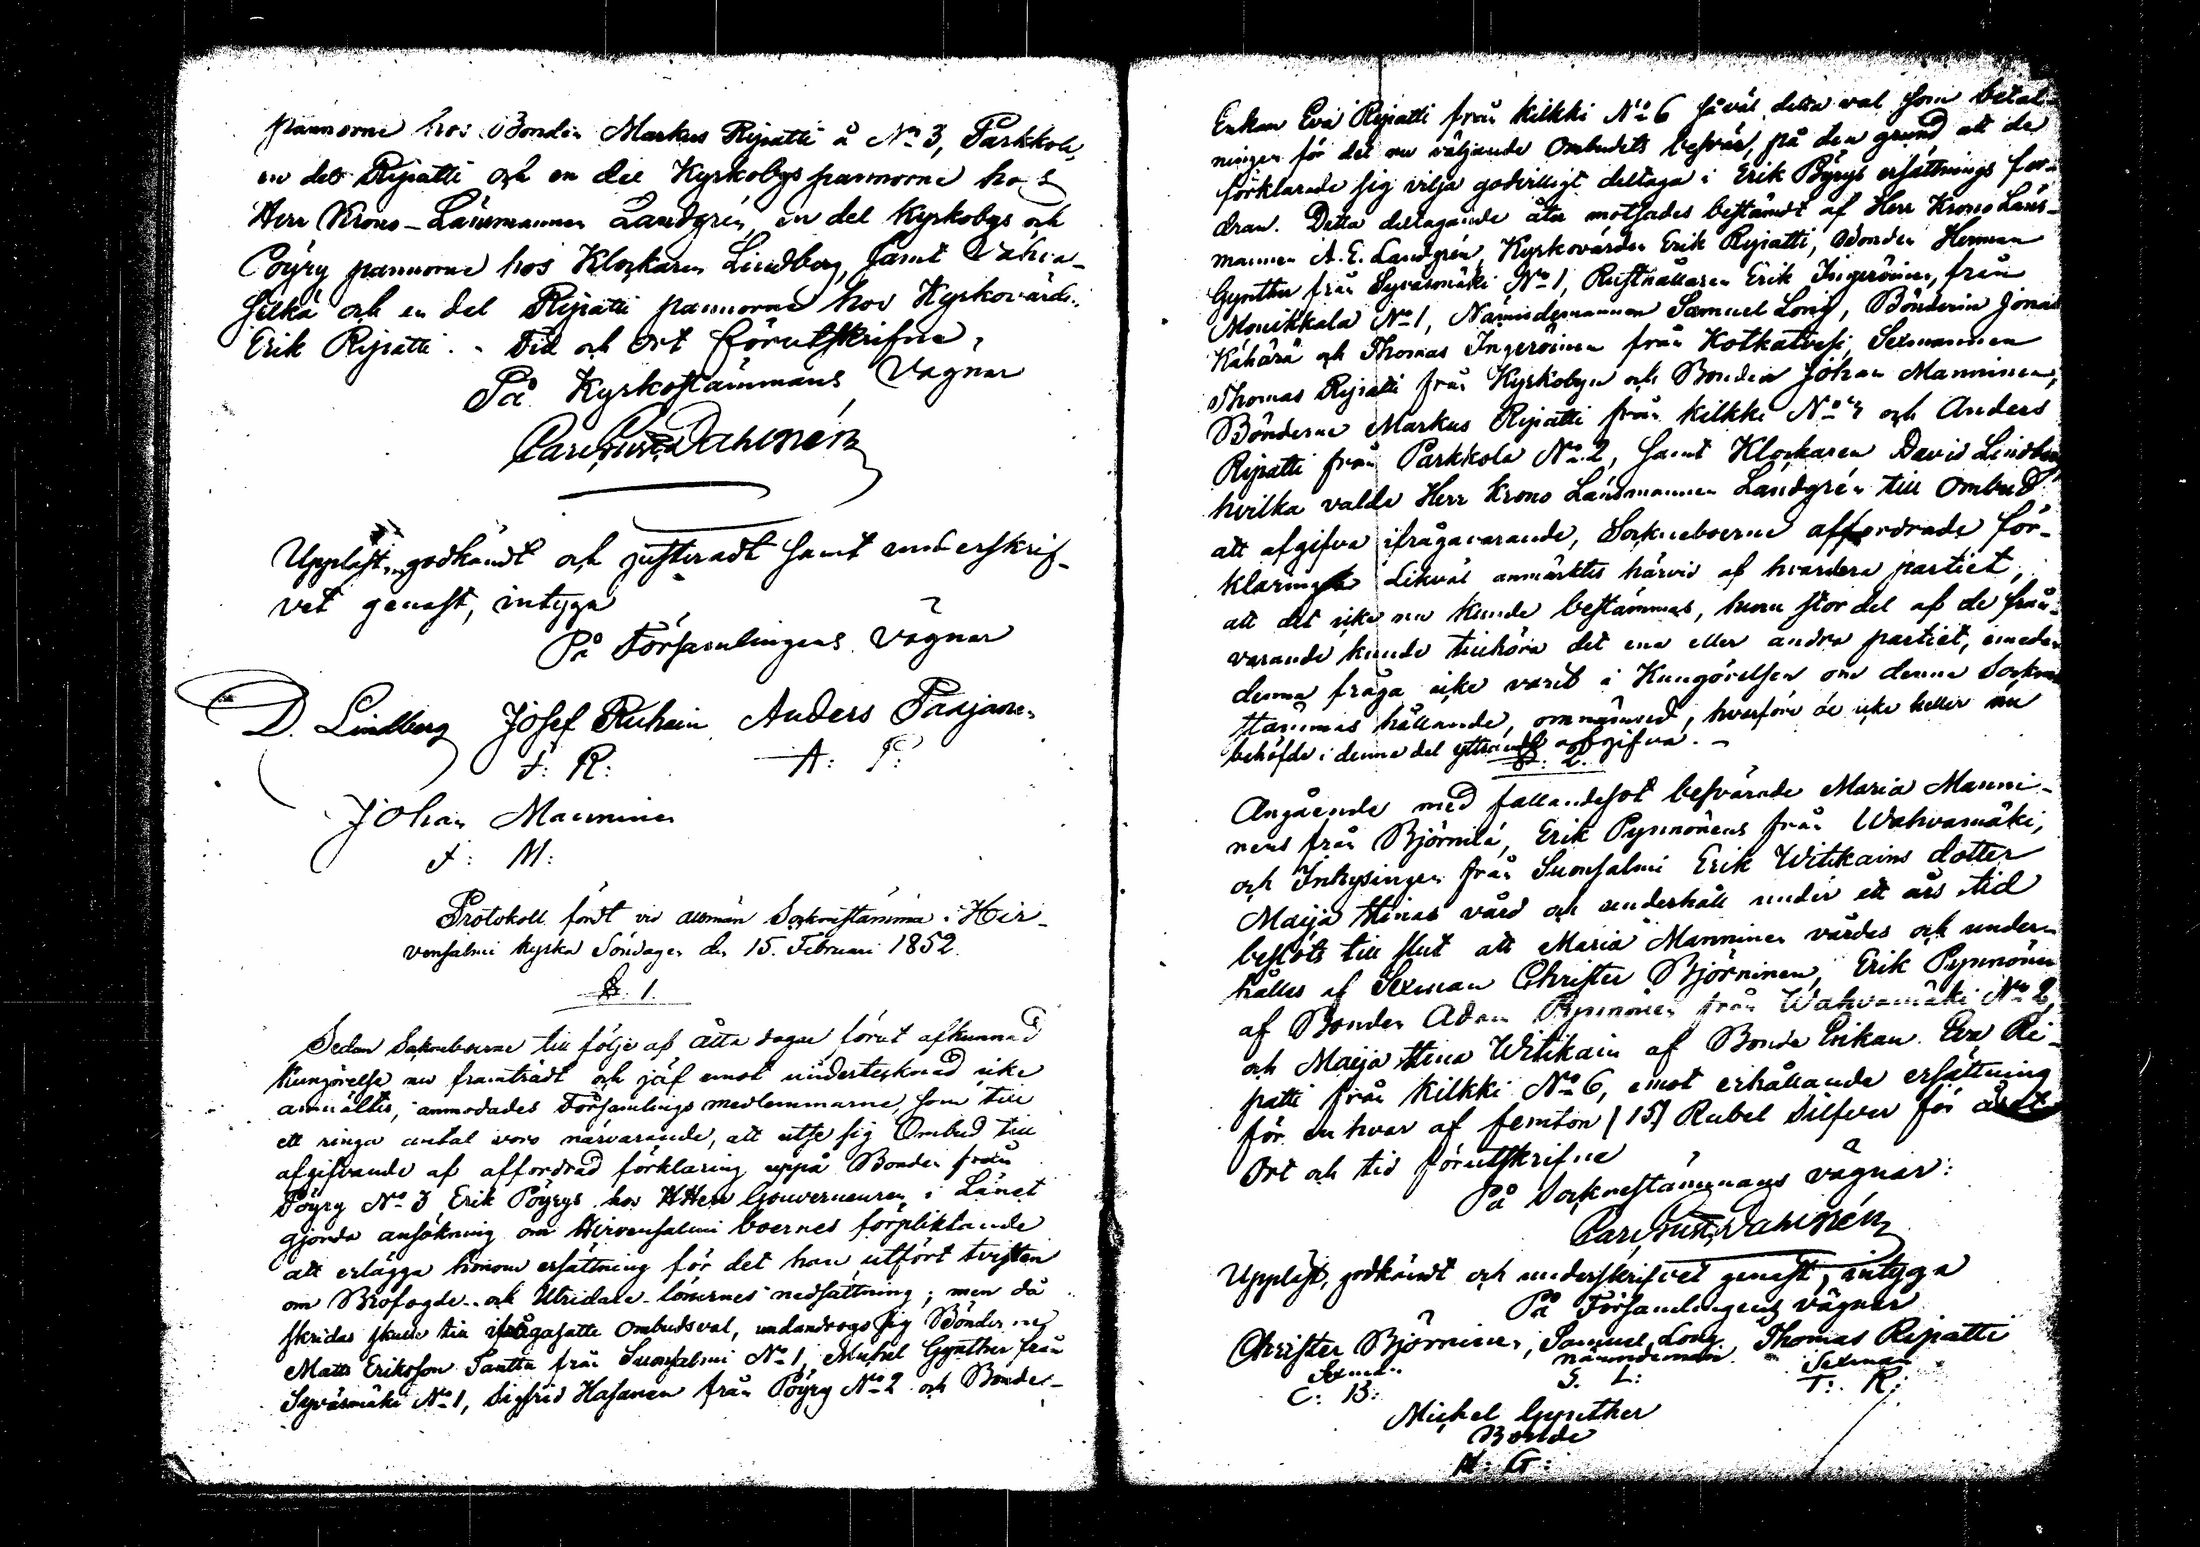 pannorne hos Bonden Markus Ripatti å No 3, Parkkola,
en del Ripatti och en del Kyrkobys pannorne hos
Herr Krono-Länsmannen Landgrén, en del Kyrkobys och
Pöyry pannorne hos Klockaren Lindberg, samt Vahva-
selkä och en del Ripatti pannorne hos Kyrkovärden
Erik Ripatti. - Tid och Ort förutskrifne,
På Kyrkostämmans Vägnar
Carl Gust. Dahlnén
Uppläst, godkändt och justeradt samt underskrif-
vet genast, intyga
På Församlingens Vägnar
D. Lindberg Josef Ruhain Anders Paajanen
J: R: A: P:
Johan Manninen
J: M:
Protokoll fördt vid allmän Sockenstämma i Hir-
vensalmi kyrka Söndagen den 15. Februari 1852.
§. 1.
Sedan Sockneboerne till följe af åtta dagar förut afkunnad
Kungörelse nu framträdt och jäf emot undertecknad icke
anmältes, anmodades Församlings medlemmarne, som till
ett ringa antal voro närvarande, att utse sig Ombud till
afgifvande af affordrad förklaring uppå Bonden från
Pöyry No 3, Erik Pöyrys hos HHerr Gouverneuren i Länet
gjorda ansökning om Hirvensalmi boernes förpliktande
att erlägga honom ersättning för det han utfört tvisten
om Brofogde- och Utridare-lönernes nedsättning; men då
skridas skulle till ifrågasatte ombudsval, undandrogo sig Bönderne
Matts Eriksson Pantta från Suonsalmi No 1, Michel Gynther från
Syväsmäki No 1, Sigfrid Hasanen från Pöyry No 2 och Bonde-
Enkan Eva Ripatti från Kilkki No 6 såväl detta val som betal-
ningen för det nu väljande Ombudets besvär, på den grund att de
förklarade sig vilja godvilligt deltaga i Erik Pöyrys ersättnings for-
dran. Detta deltagande åter motsades bestämdt af Herr Krono Läns-
mannen A. E. Landgrén, Kyrkovärden Erik Ripatti, Bonden Herman
Gynther från Syväsmäki No 1, Rusthållaren Erik Ingeröinen, från
Monikkala No 1, Nämndemannen Samuel Long, Bönderna Jonas
Kähärä och Thomas Ingeröinen från Kotkatvesi, Sexmannen
Thomas Ripatti från Kyrkobyn och Bonden Johan Manninen,
Bönderne Markus Ripatti från Kilkki No 4 och Anders
Ripatti från Parkkola No 2, samt Klockaren David Lindberg,
hvilka valde Herr Krono Länsmannen Landgrén till Ombud
att afgifva ifrågavarande, Sockneboerne affordrade för-
klaring. Likväl anmärktes härvid af hvardera partiet,
att det icke nu kunde bestämmas, huru stor del af de från-
varande kunde tillhöra det ena eller andra partiet, emedan
denna fråga icke varit i Kungörelsen om denna Sockne-
stämmas hållande, omnämnd, hvarföre de icke heller nu
behöfde i denna del yttrande afgifva. -
§. 2.
Angående med fallandesot besvärade Maria Manni-
nens från Björnilä, Erik Pynnönens från Wahvamäki,
och Inhysingen från Suonsalmi Erik Witikains dotter
Maija Stinas vård och underhåll under ett års tid
beslöts till slut att Maria Manninen vårdas och under-
hålles af Sexman Christer Björninen, Erik Pynnönen
af Bonden Adam Pynnönen från Wahvamäki No 2,
och Maija Stina Witikain af Bonde Enkan Eva Ri-
patti från Kilkki No 6, emot erhållande ersättning
för en hvar af femton (15) Rubel Silfver för året.
Ort och tid förutskrifne
På Socknestämmans vägnar:
Carl Gust. Dahlnén
Uppläst, godkändt och underskrifvet genast, intyga
På Församlingens vägnar
Christer Björninen, Samuel Long Thomas Ripatti
Sexman nämndeman Sexman
C: B: S. L: T: R:
Michel Gynther
Bonde
M: G: